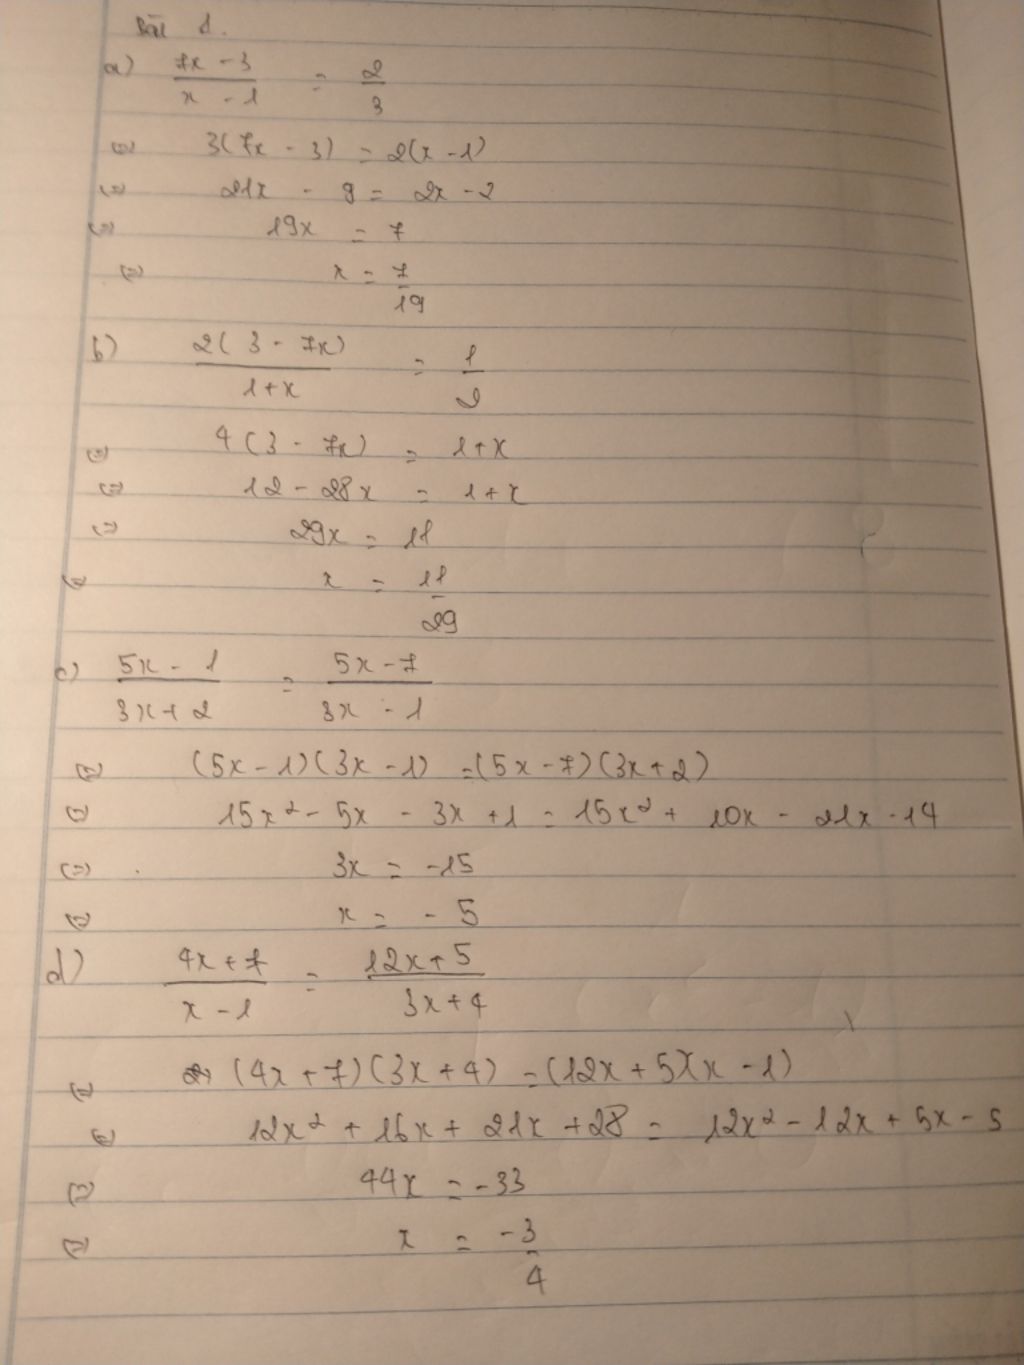 Bài 1.
a) (7x - 3)/(x - 1) = 2/3
(=) 3(7x - 3) = 2(x - 1)
(=) 21x - 9 = 2x - 2
(=) 19x = 7
(=) x = 7/19
b) 2(3 - 7x)/(1+x) = 1/2
(=) 4(3 - 7x) = 1+x
(=) 12 - 28x = 1+x
(=) 29x = 11
(=) x = 11/29
c) (5x - 1)/(3x + 2) = (5x - 7)/(3x - 1)
(=) (5x - 1)(3x - 1) = (5x - 7)(3x + 2)
(=) 15x² - 5x - 3x + 1 = 15x² + 10x - 21x - 14
(=) 3x = -15
(=) x = -5
d) (4x + 7)/(x - 1) = (12x + 5)/(3x + 4)
(=) (4x + 7)(3x + 4) = (12x + 5)(x - 1)
(=) 12x² + 16x + 21x + 28 = 12x² - 12x + 5x - 5
(=) 44x = -33
(=) x = -3/4